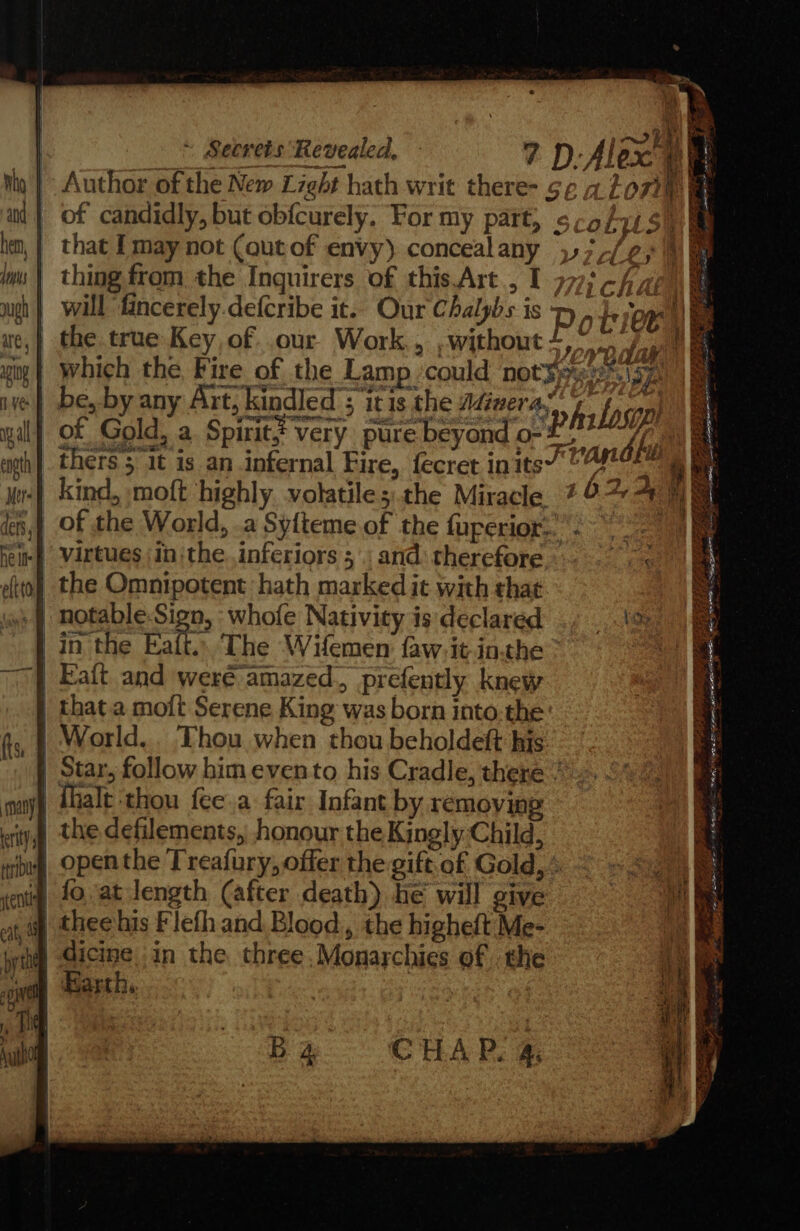 Secrets Revealed, 7
Author of the New Light hath writ there-
of candidly, but obſcurely. For my part,
that I may not (out of envy) conceal any
thing from the Inquirers of this Art, I
will ſincerely deſcribe it. Our Chalybs is
the true Key of our Work, without
which the Fire of the Lamp could not
be, by any Art, kindled; it is the Minera
of Gold, a Spirit very pure beyond o-
thers; it is an infernal Fire, ſecret in its
kind, moſt highly volatile; the Miracle
of the World, a Syſteme of the ſuperior
virtues in the inferiors; and therefore
the Omnipotent hath marked it with that
notable Sign, whoſe Nativity is declared
in the Eaſt. The Wiſemen ſaw it in the
Eaſt and were amazed, preſently knew
that a moſt Serene King was born into the
World. Thou when thou beholdeſt his
Star, follow him even to his Cradle, there
ſhalt thou ſee a fair Infant by removing
the defilements, honour the Kingly Child,
open the Treaſury, offer the gift of Gold,
ſo at length (after death) he will give
thee his Fleſh and Blood, the higheſt Me-
dicine in the three Monarchies of the
Earth.
B 4 CHAP. 4.
D. Alex
ſcotus
michael
Potier
philosop